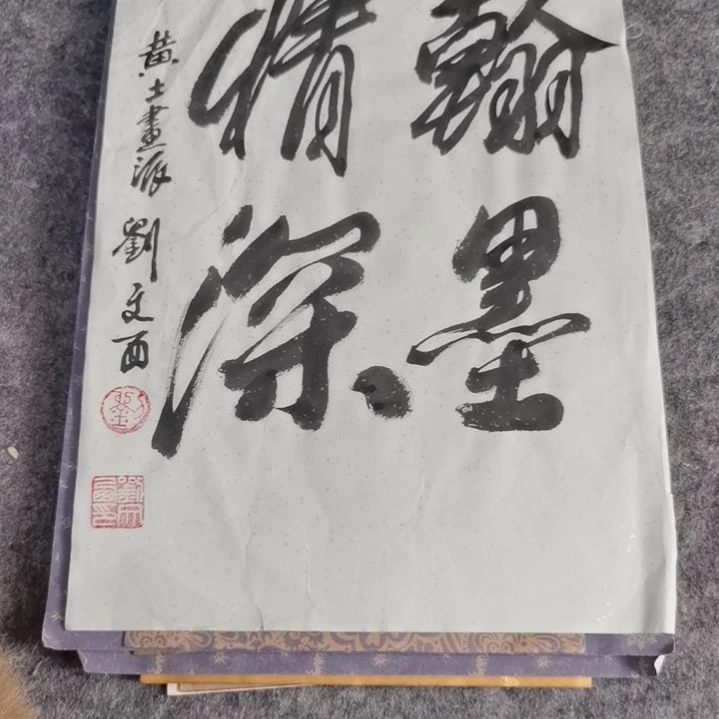 翰墨
情深
黄土畫派 劉文西